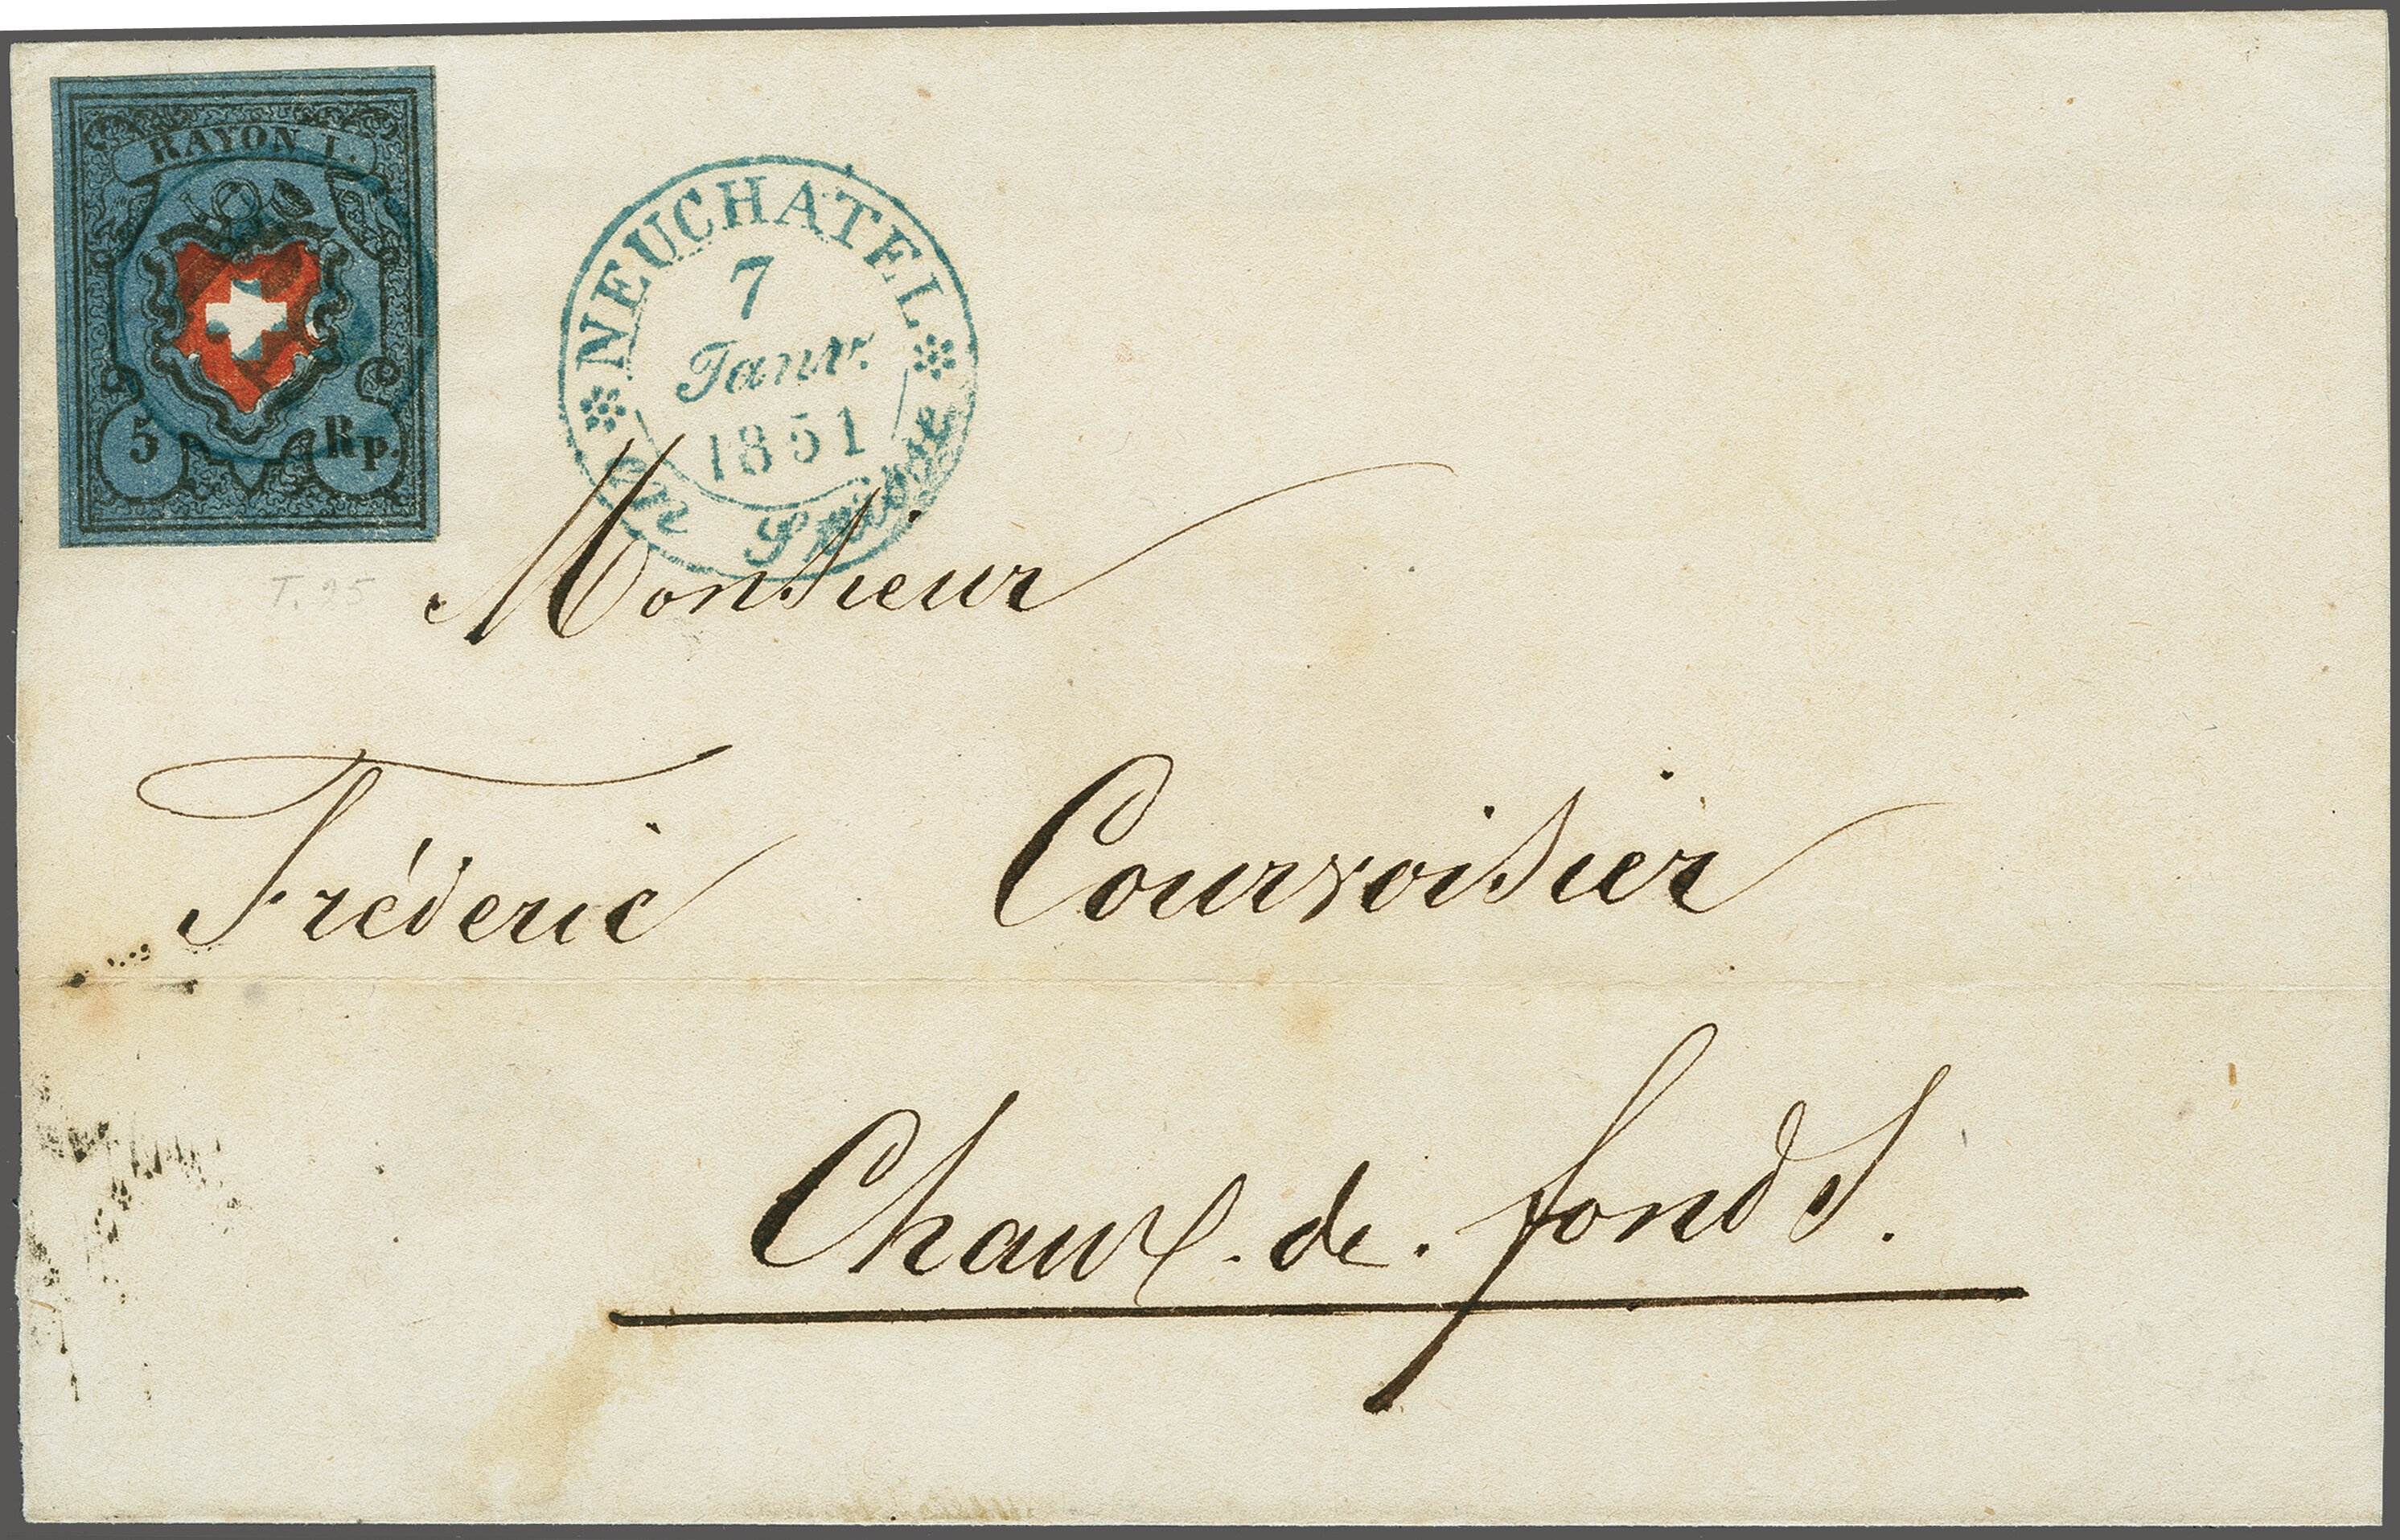 RAYON I.
5 Rp.
NEUCHATEL
7
Janv.
1851
Suisse
T. 25
Monsieur
Fréderic Courvoisier
Chaux. de. fonds.